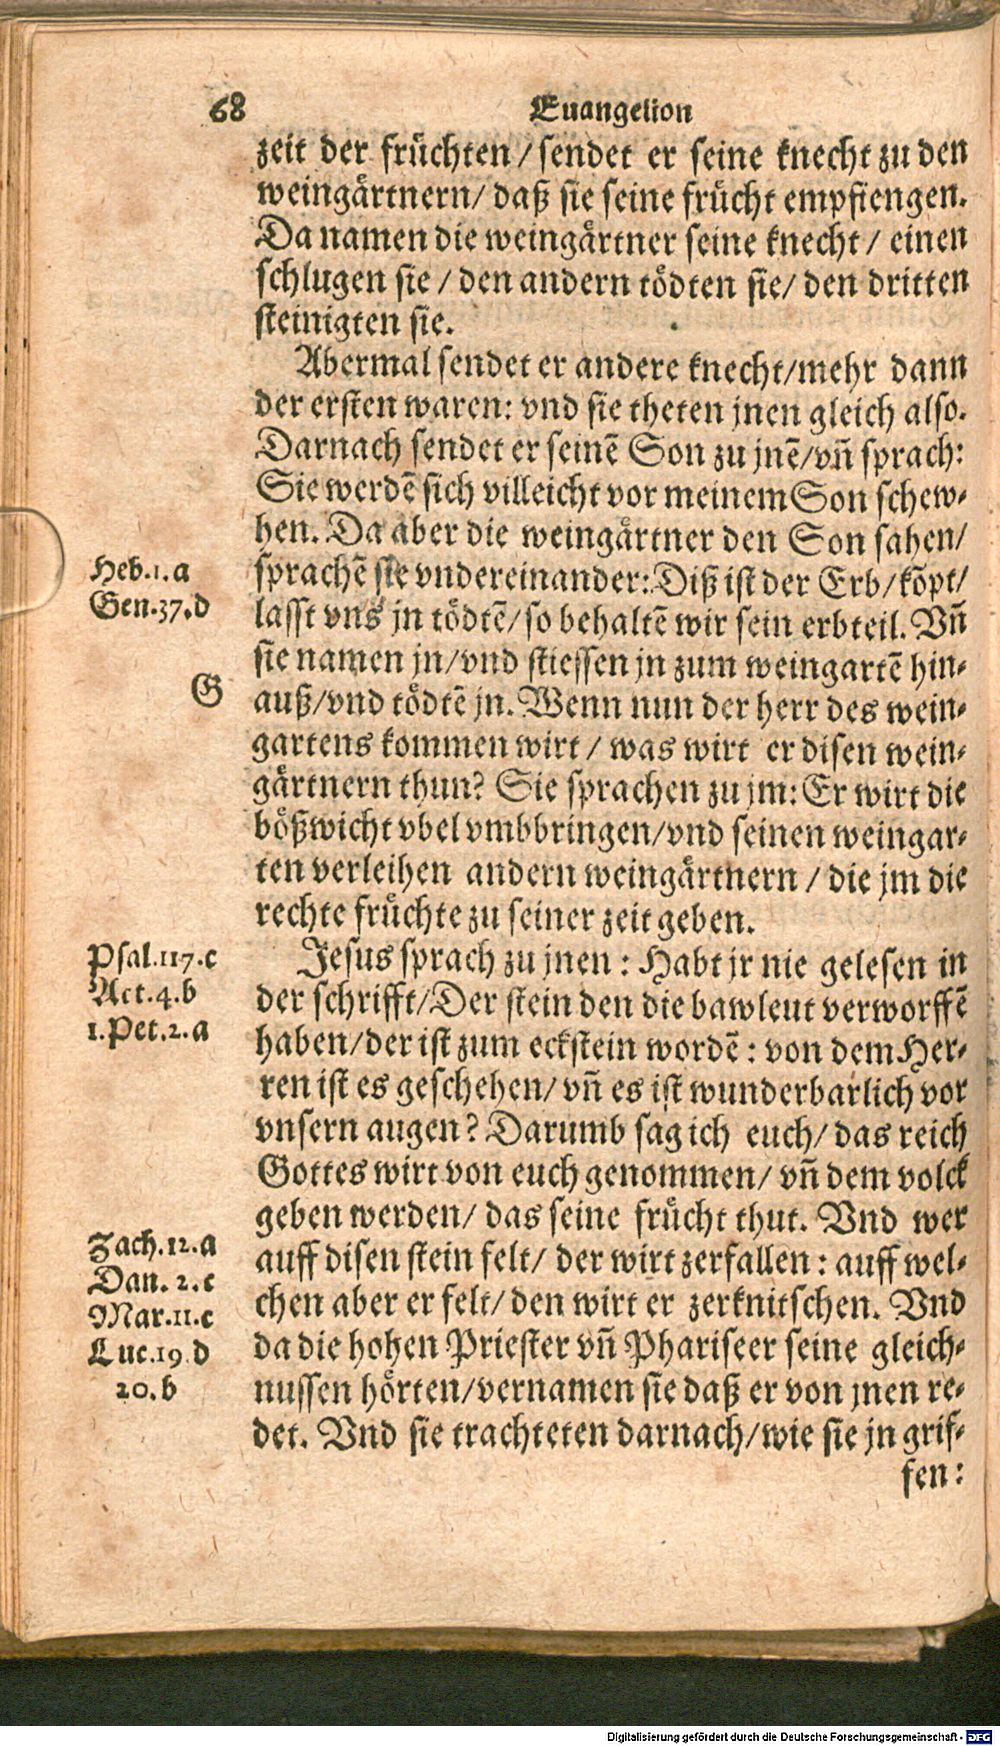 68 Euangelion
zeit der früchten / sendet er seine knecht zu den
weingärtnern / daß sie seine frücht empfiengen.
Da namen die weingärtner seine knecht / einen
schlugen sie / den andern tödten sie / den dritten
steinigten sie.
Abermal sendet er andere knecht / mehr dann
der ersten waren: vnd sie theten jnen gleich also.
Darnach sendet er seinē Son zu jnē / vn̄ sprach:
Sie werdē sich villeicht vor meinem Son schew-
hen. Da aber die weingärtner den Son sahen /
Heb.1.a
sprachē sie vndereinander: Diß ist der Erb / kōpt /
Gen.37.d
lasst vns jn tödtē / so behaltē wir sein erbteil. Vn̄
sie namen jn / vnd stiessen jn zum weingartē hin-
G
auß / vnd tödtē jn. Wenn nun der herr des wein-
gartens kommen wirt / was wirt er disen wein-
gärtnern thun? Sie sprachen zu jm: Er wirt die
bößwicht vbel vmbbringen / vnd seinen weingar-
ten verleihen andern weingärtnern / die jm die
rechte früchte zu seiner zeit geben.
Psal.117.c
Jesus sprach zu jnen: Habt jr nie gelesen in
Act.4.b
der schrifft / Der stein den die bawleut verworffē
1.Pet.2.a
haben / der ist zum eckstein wordē: von dem Her-
ren ist es geschehen / vn̄ es ist wunderbarlich vor
vnsern augen? Darumb sag ich euch / das reich
Gottes wirt von euch genommen / vn̄ dem volck
geben werden / das seine frücht thut. Vnd wer
Zach.12.a
auff disen stein felt / der wirt zerfallen: auff wel-
Dan.2.c
chen aber er felt / den wirt er zerknitschen. Vnd
Mar.11.c
da die hohen Priester vn̄ Phariseer seine gleich-
Luc.19.d
20.b
nussen hörten / vernamen sie daß er von jnen re-
det. Vnd sie trachteten darnach / wie sie jn grif-
fen:
Digitalisierung gefördert durch die Deutsche Forschungsgemeinschaft - DFG